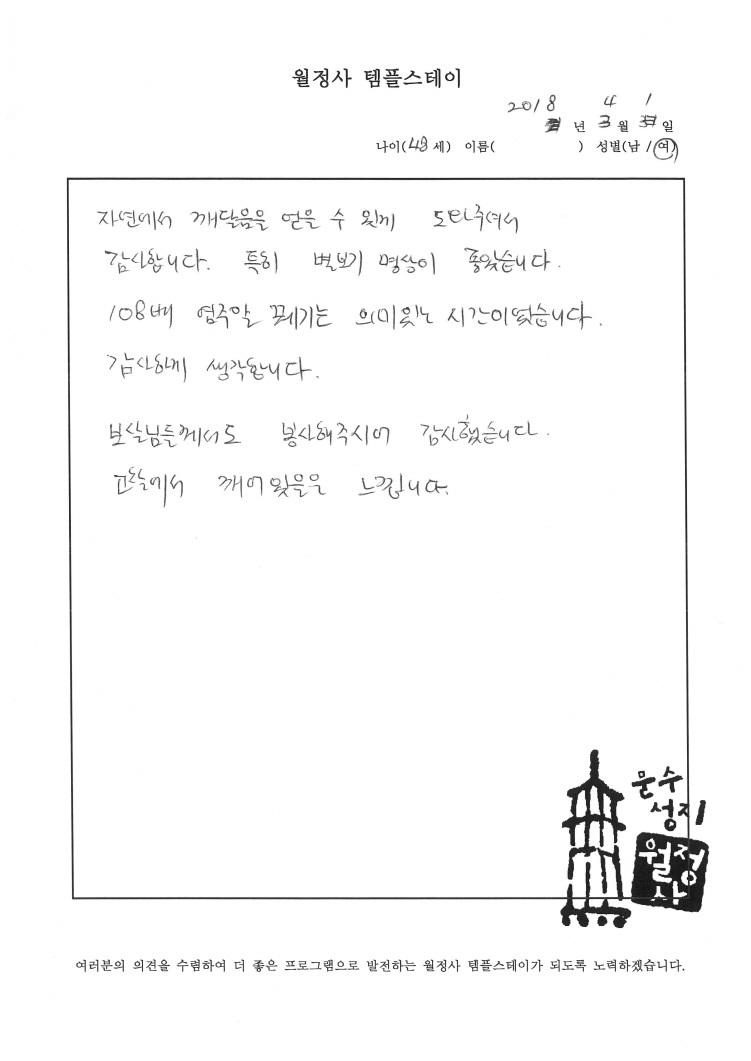 월정사 템플스테이
2018 4 1
년 3 월 일
나이(48세) 이름( ) 성별(남 / 여)
자연에서 깨달음을 얻을 수 있게 도와주셔서
감사합니다. 특히 별보기 명상이 좋았습니다.
108배 염주알 꿰기는 의미있는 시간이였습니다.
감사하게 생각합니다.
보살님들께서도 봉사해주시어 감사했습니다.
고요에서 깨어있음을 느낍니다.
문수
성지
월정
사
여러분의 의견을 수렴하여 더 좋은 프로그램으로 발전하는 월정사 템플스테이가 되도록 노력하겠습니다.